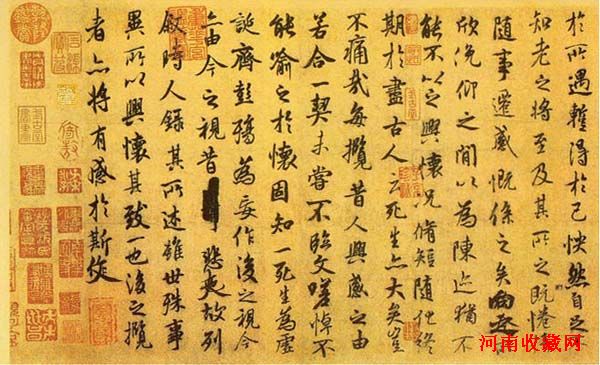 於所遇暫得於己怏然自足不
知老之將至及其所之既惓情
隨事遷感慨係之矣向之所
欣俛仰之間以為陳迹猶不
能不以之興懷況脩短隨化終
期於盡古人云死生亦大矣豈
不痛哉每攬昔人興感之由
若合一契未嘗不臨文嗟悼不
能喻之於懷固知一死生為虛
誕齊彭殤為妄作後之視今
亦由今之視昔悲夫故列
敘時人錄其所述雖世殊事
異所以興懷其致一也後之攬
者亦將有感於斯文
河南收藏网